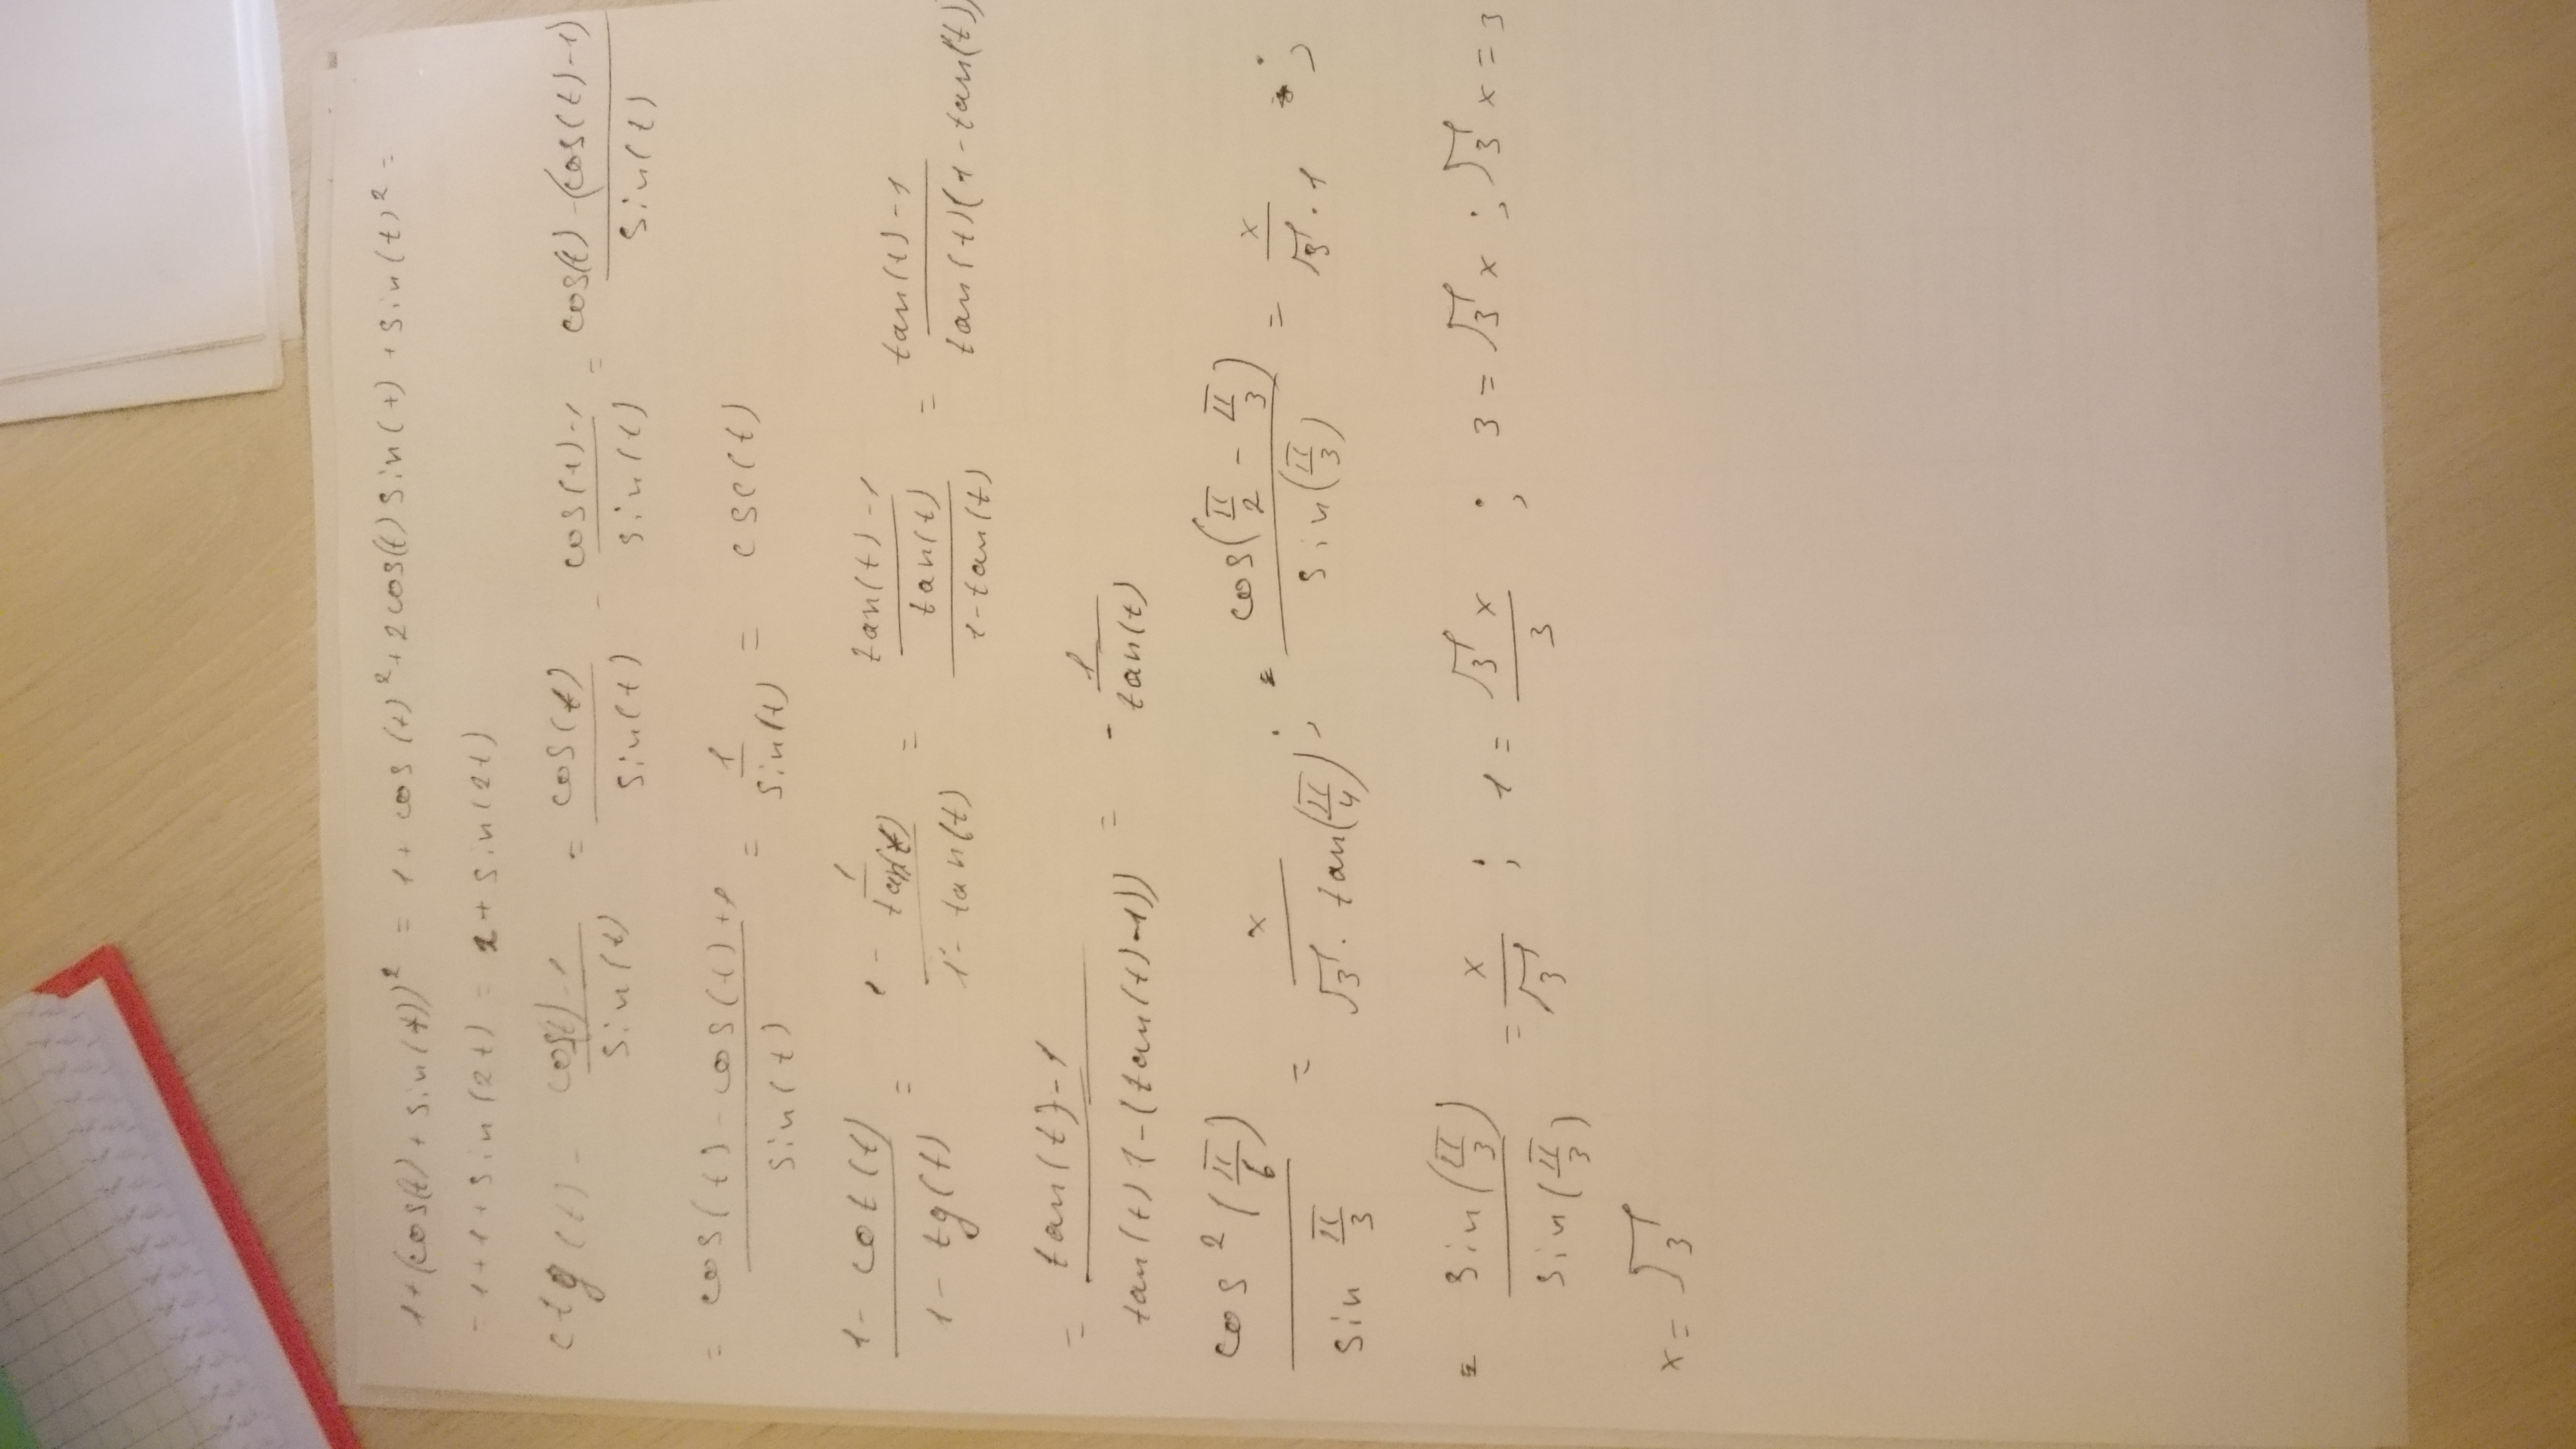 1+(cos(t)+sin(t))² = 1+cos(t)²+2cos(t)sin(t)+sin(t)² =
= 1+1+sin(2t) = 2+sin(2t)
ctg(t) - (cos(t)-1)/sin(t) = cos(t)/sin(t) - (cos(t)-1)/sin(t) = (cos(t)-(cos(t)-1))/sin(t)
= (cos(t)-cos(t)+1)/sin(t) = 1/sin(t) = csc(t)
(1-cot(t))/(1-tg(t)) = (1-1/tan(t))/(1-tan(t)) = ((tan(t)-1)/tan(t))/(1-tan(t)) = (tan(t)-1)/(tan(t)(1-tan(t))
= (tan(t)-1)/(tan(t)(-(tan(t)-1)) = -1/tan(t)
cos²(π/6)/sin π/3 = x/(√3·tan(π/4)); = cos(π/2-π/3)/sin(π/3) = x/(√3·1);
= sin(π/3)/sin(π/3) = x/√3; 1 = √3x/3; 3=√3x; √3x=3
x=√3